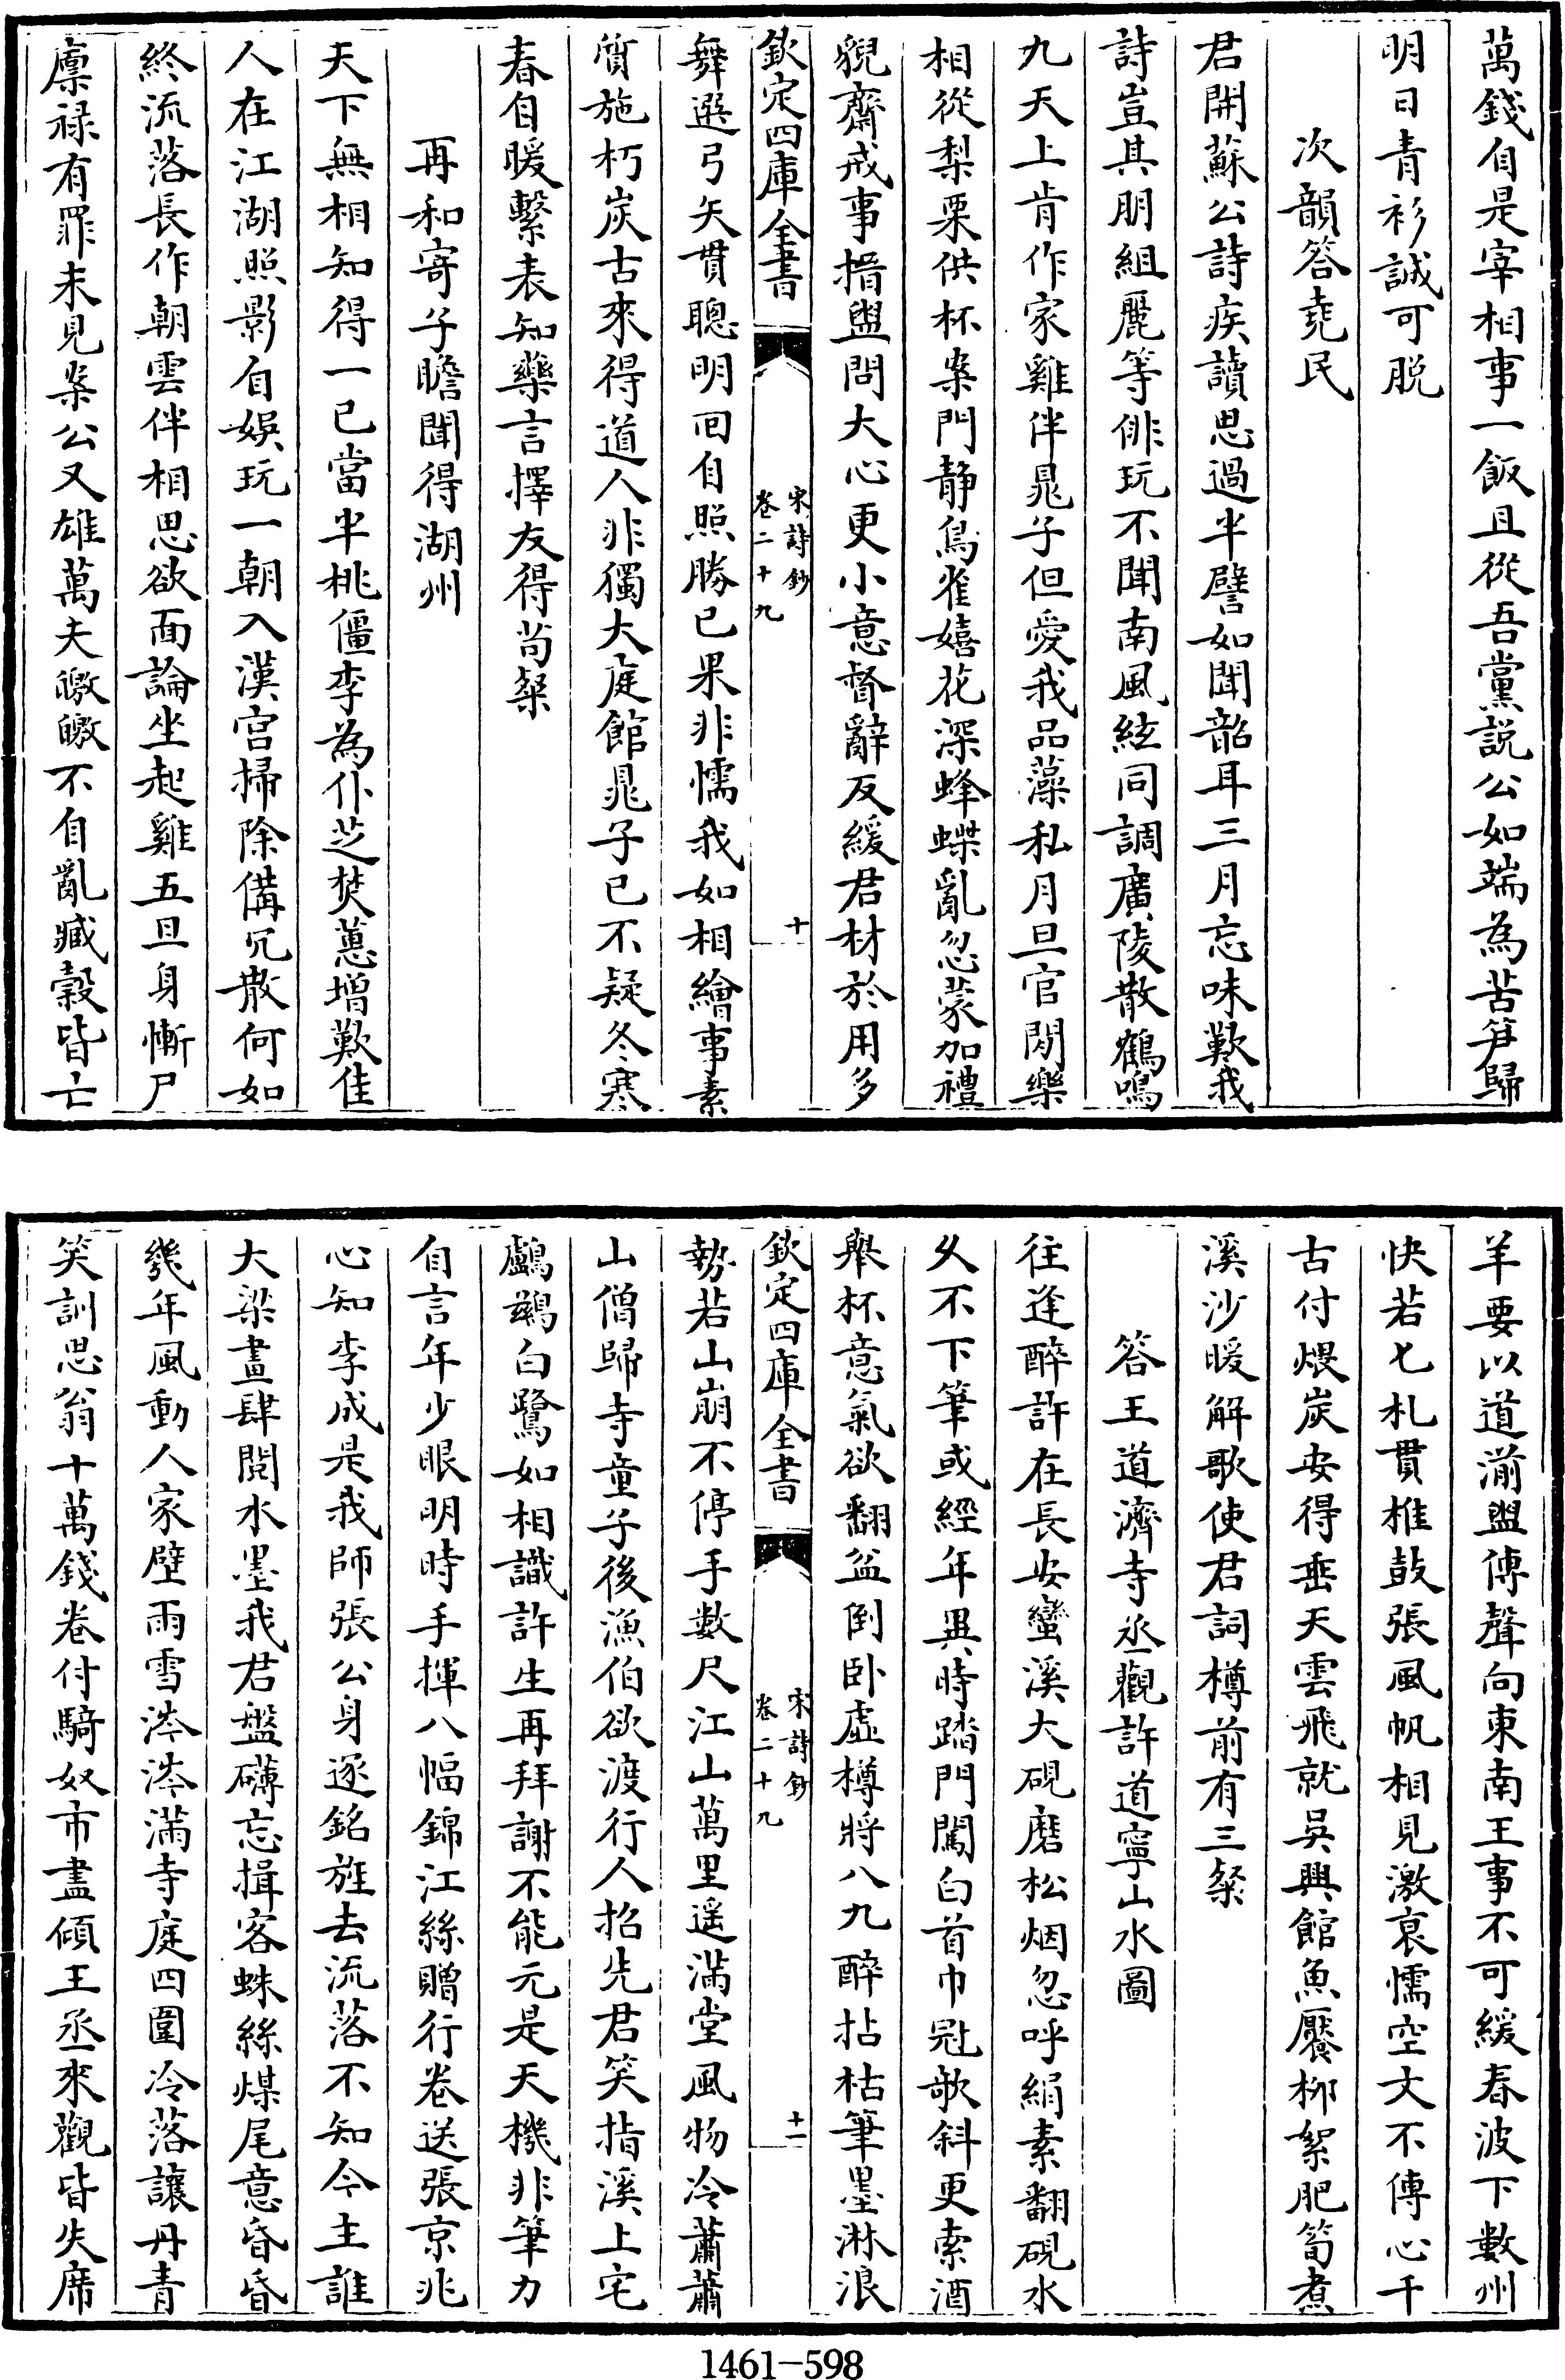 萬錢自是宰相事一飯且從吾黨説公如端為苦笋歸
明日青衫誠可脱
次韻答堯民
君開蘇公詩疾讀思過半譬如聞韶耳三月忘味歎我
詩豈其朋組麗等俳玩不聞南風絃同調廣陵散鶴鳴
九天上肯作家雞伴晁子但愛我品藻私月旦官閑樂
相從梨栗供杯案門静鳥雀嬉花深蜂蝶亂忽蒙加禮
貌齋戒事搢盥問大心更小意督辭反緩君材於用多
欽定四庫全書
宋詩鈔
卷二十九
十
舞選弓矢貫聰明回自照勝已果非懦我如相繪事素
質施朽炭古來得道人非獨大庭館晁子已不疑冬寒
春自暖繫表知藥言擇友得荀粲
再和寄子瞻聞得湖州
天下無相知得一已當半桃僵李為仆芝焚蕙增歎佳
人在江湖照影自娯玩一朝入漢宫掃除備冗散何如
終流落長作朝雲伴相思欲面論坐起雞五旦身慚尸
廪禄有罪未見案公又雄萬夫皦皦不自亂臧穀皆亡
羊要以道湔盥傅聲向東南王事不可緩春波下數州
快若七札貫椎鼓張風帆相見激衰懦空文不傅心千
古付煨炭安得垂天雲飛就吳興館魚饜柳絮肥筍煮
溪沙暖解歌使君詞樽前有三粲
答王道濟寺丞觀許道寧山水圖
往逢醉許在長安蠻溪大硯磨松烟忽呼絹素翻硯水
乆不下筆或經年異時踏門闖白首巾冠欹斜更索酒
舉杯意氣欲翻盆倒卧虛樽將八九醉拈枯筆墨淋浪
欽定四庫全書
宋詩鈔
卷二十九
十一
勢若山崩不停手數尺江山萬里遥滿堂風物冷蕭蕭
山僧歸寺童子後漁伯欲渡行人招先君笑指溪上宅
鸕鷀白鷺如相識許生再拜謝不能元是天機非筆力
自言年少眼明時手揮八幅錦江絲贈行卷送張京兆
心知李成是我師張公身逐銘旌去流落不知今主誰
大梁畫肆閱水墨我君盤礴忘揖客蛛絲煤尾意昏昏
幾年風動人家壁雨雪涔涔滿寺庭四圍冷落讓丹青
笑訓思翁十萬錢卷付騎奴市盡傾王丞來觀皆失席
1461-598